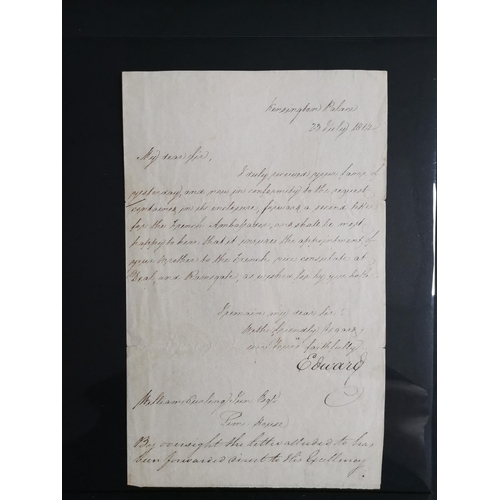 Kensington Palace
23 July 18
My dear Sir,
I duly received your favor of
yesterday, and now in conformity to the request
contained in its enclosure, forward a second letter
for the French Ambassador, and shall be most
happy to hear that it insures the appointment of
your Brother to the French vice consulate at
Deal and Ramsgate, as wished for by you both.
I remain, my dear Sir,
with friendly regard,
ever Yours faithfully
Edward
William Curling Jun Esqr
House
By oversight the letter alluded to has
been forwarded direct to His Excellency